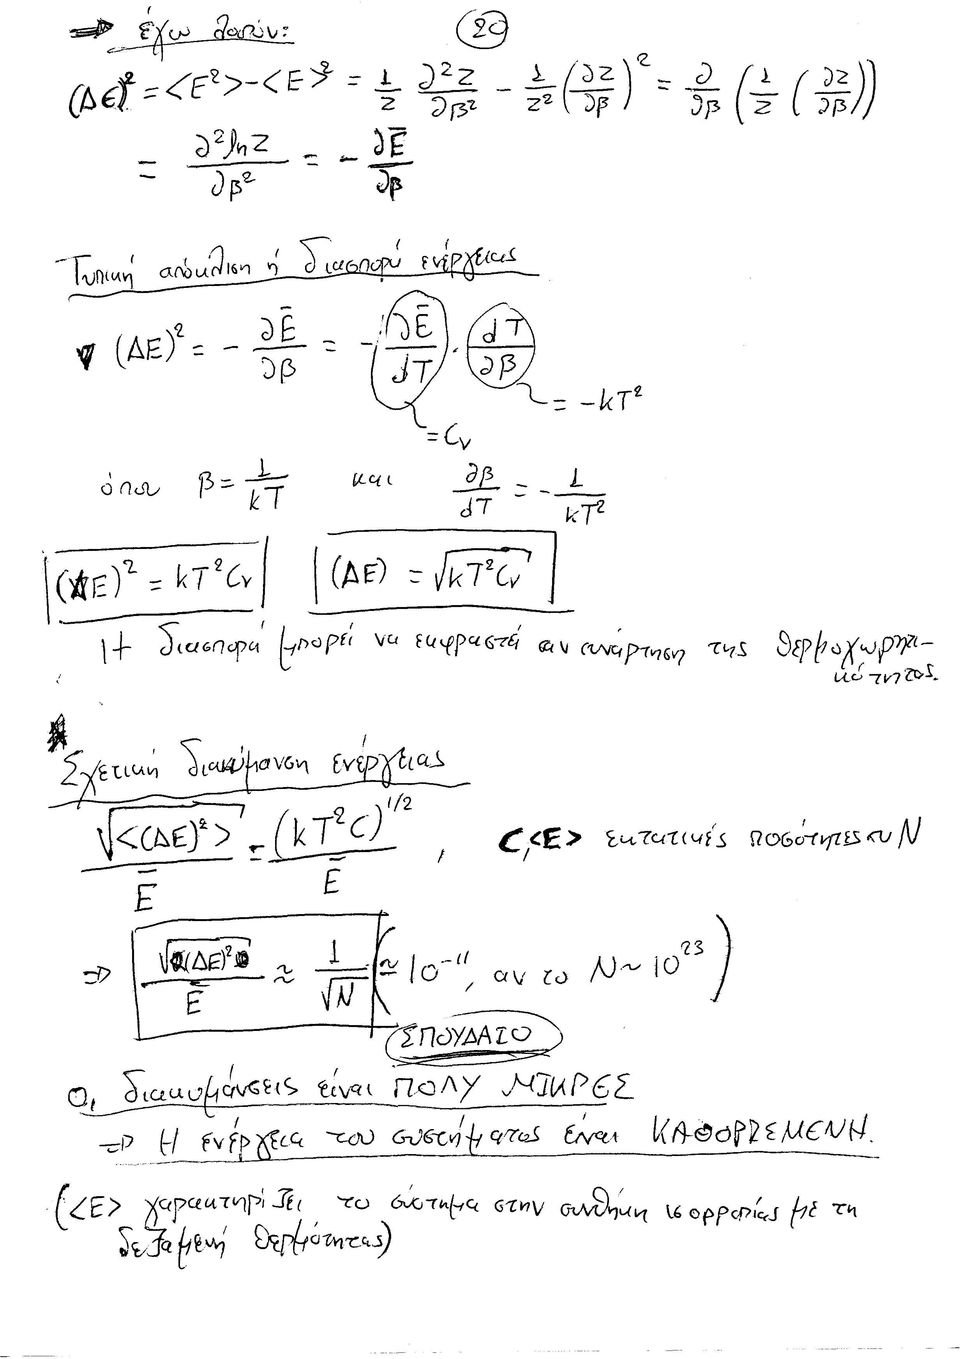 ⇒ έχω λοιπόν: (20)
(ΔE)² = <E²> - <E>² = 1/Z ∂²Z/∂β² - 1/Z² (∂Z/∂β)² = ∂/∂β (1/Z (∂Z/∂β))
= ∂²lnZ/∂β² = - ∂Ē/∂β
Τυπική απόκλιση ή διασπορά ενέργειας
(ΔE)² = - ∂Ē/∂β = - (∂Ē/dT) · (dT/∂β)
= -kT²
= Cv
όπου β = 1/kT και ∂β/dT = - 1/kT²
(ΔE)² = kT²Cv (ΔE) = √kT²Cv
Η διασπορά μπορεί να εκφραστεί σαν συνάρτηση της θερμοχωρητι-
κότητος.
Σχετική διακύμανση ενέργειας
√<(ΔE)²>/Ē = (kT²C)^1/2/Ē , C,<E> εκτατικές ποσότητες του N
⇒ √(ΔE)²/Ē ≈ 1/√N (≃ 10⁻¹¹, αν το N~10²³)
ΣΠΟΥΔΑΙΟ
Οι διακυμάνσεις είναι ΠΟΛΥ ΜΙΚΡΕΣ
⇒ Η ενέργεια του συστήματος είναι ΚΑΘΟΡΙΣΜΕΝΗ.
(<E> χαρακτηρίζει το σύστημα στην συνθήκη ισορροπίας με τη
δεξαμενή θερμότητας)